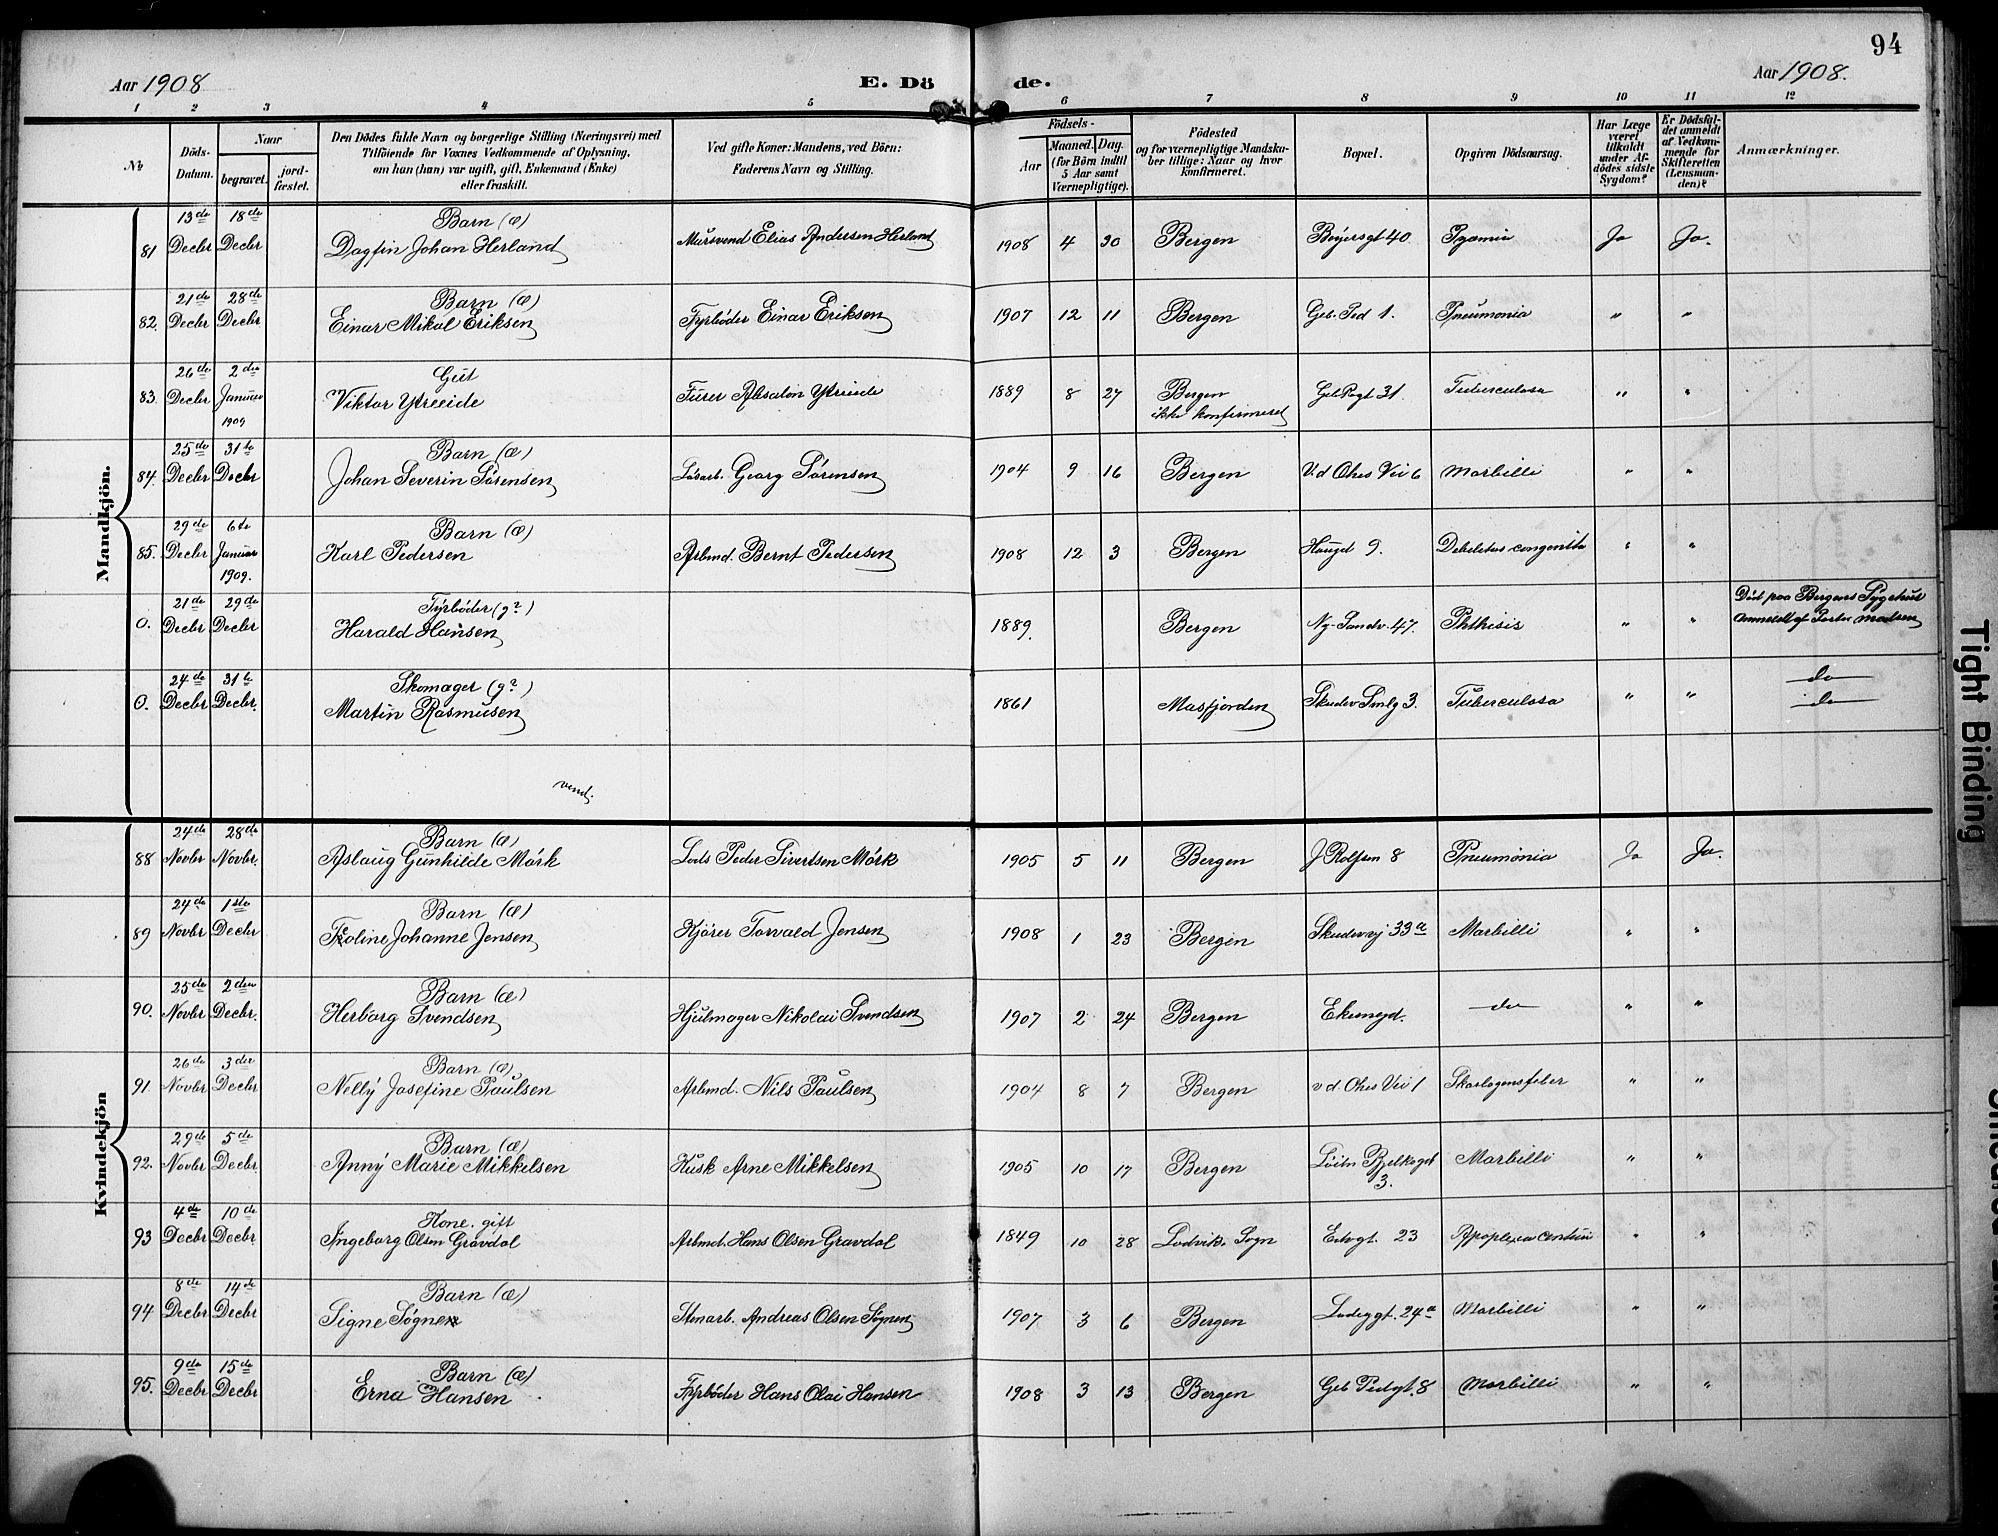 94
Aar 1908 E. Dö de. Aar 1908.
1 2 3 4 5 6 7 8 9 10 11 12
No
Döds-Datum.
Naar
begravet.
jord-fæstet.
Den Dödes fulde Navn og borgerlige Stilling (Næringsvei) med
Tilföiende for Voxnes Vedkommende af Oplysning,
om han (hun) var ugift, gift, Enkemand (Enke)
eller fraskilt.
Ved gifte Koner: Mandens, ved Börn:
Faderens Navn og Stilling.
Födsels-
Aar
Maaned. Dag.
(for Börn indtil
5 Aar samt
Værnepligtige).
Födested
og for værnepligtige Mandska-
ber tillige: Naar og hvor
konfirmeret.
Bopæl.
Opgiven Dödsaarsag.
Har Læge
været
tilkaldt
under Af-
dödes sidste
Sygdom?
Er Dödsfal-
det anmeldt
af Vedkom-
mende for
Skifteretten
(Lensman-
den)?
Anmærkninger.
Mandkjön.
13de 18de Barn (æ)
81 Decbr Decbr Dagfin Johan Herland Mursvend Elias Andersen Herland 1908 4 30 Bergen Beyersgt 40 Pyæmia Ja Ja.
21de 28de Barn (æ)
82. Decbr Decbr Einar Mikal Eriksen Fyrbøder Einar Eriksen 1907 12 11 Bergen Geb. Ped 1. Pneumonia " "
26de 2den Gut
83. Decbr Januar Viktor Ytreeide Furer Absalon Ytreeide 1889 8 27 Bergen Geb Pagt 31. Tuberculosa " "
1909 ikke konfirmered
25de 31te Barn (æ)
84. Decbr Decbr Johan Severin Sørensen Løsarb. Georg Sørensen 1904 9 16 Bergen V. d Ohes Vei 6 Morbilli " "
29de 6te Barn (æ)
85. Decbr Januar Karl Pedersen Arbmd. Bernt Pedersen 1908 12 3 Bergen Hauged 9. Debilitas congenita " "
1909.
21de 29de Fyrbøder (g?) Død paa Bergens Sygehus
0. Decbr Decbr Harald Hansen 1889. Bergen Ny-Sandv. 47. Phthisis " " anmeldt af Pastor Madsen
24de 31te Skomager (g?) do
0. Decbr Decbr. Martin Rasmusen 1861 Masfjorden Skudev Smlg 3. Tuberculosa " " do
vend.
Kvindekjön
24de 28de Barn (æ)
88 Novbr Novbr. Aslaug Gunhilde Mørk Lods Peder Sivertsen Mørk 1905 5 11 Bergen J Rolfsen 8 Pneumonia Ja Ja.
24de 1ste Barn (æ)
89 Novbr Decbr Johanne Jensen Kjører Torvald Jensen 1908 1 23 Bergen Skudevvj 33a Morbilli " "
25de 2den Barn (æ)
90. Novbr Decbr. Herborg Svendsen Hjulmager Nikolai Svendsen 1907 2 24 Bergen do " "
26de 3die Barn (æ)
91. Novbr Decbr Nelly Josefine Paulsen Arbmd. Nils Paulsen 1904 8 7 Bergen v d. Ohes Vei 1 Skarlagensfeber " "
29de 5de Barn (æ)
92. Novbr Decbr Anny Marie Mikkelsen Kusk Arne Mikkelsen 1905 10 17 Bergen 3. Morbilli " "
4de 10de Kone. gift
93 Decbr Decbr. Ingeborg Olsen Gravdal Arbmd. Hans Olsen Gravdal 1849 10 28 Ladvik. Sogn 23 " "
8de 14de Barn (æ)
94 Decbr Decbr Signe Søgnen Stenarb. Andreas Olsen Søgnen 1907 3 6 Bergen Ladeggt. 24a Morbilli " "
9de 15de Barn (æ)
95. Decbr Decbr Erna Hansen Fyrbøder Hans Olai Hansen 1908 3 13 Bergen Geb Pedgt. 8 Morbilli " "
Tight Binding